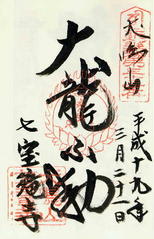 犬鳴山
平成十九年
三月二十一日
大龍不動
七宝瀧寺